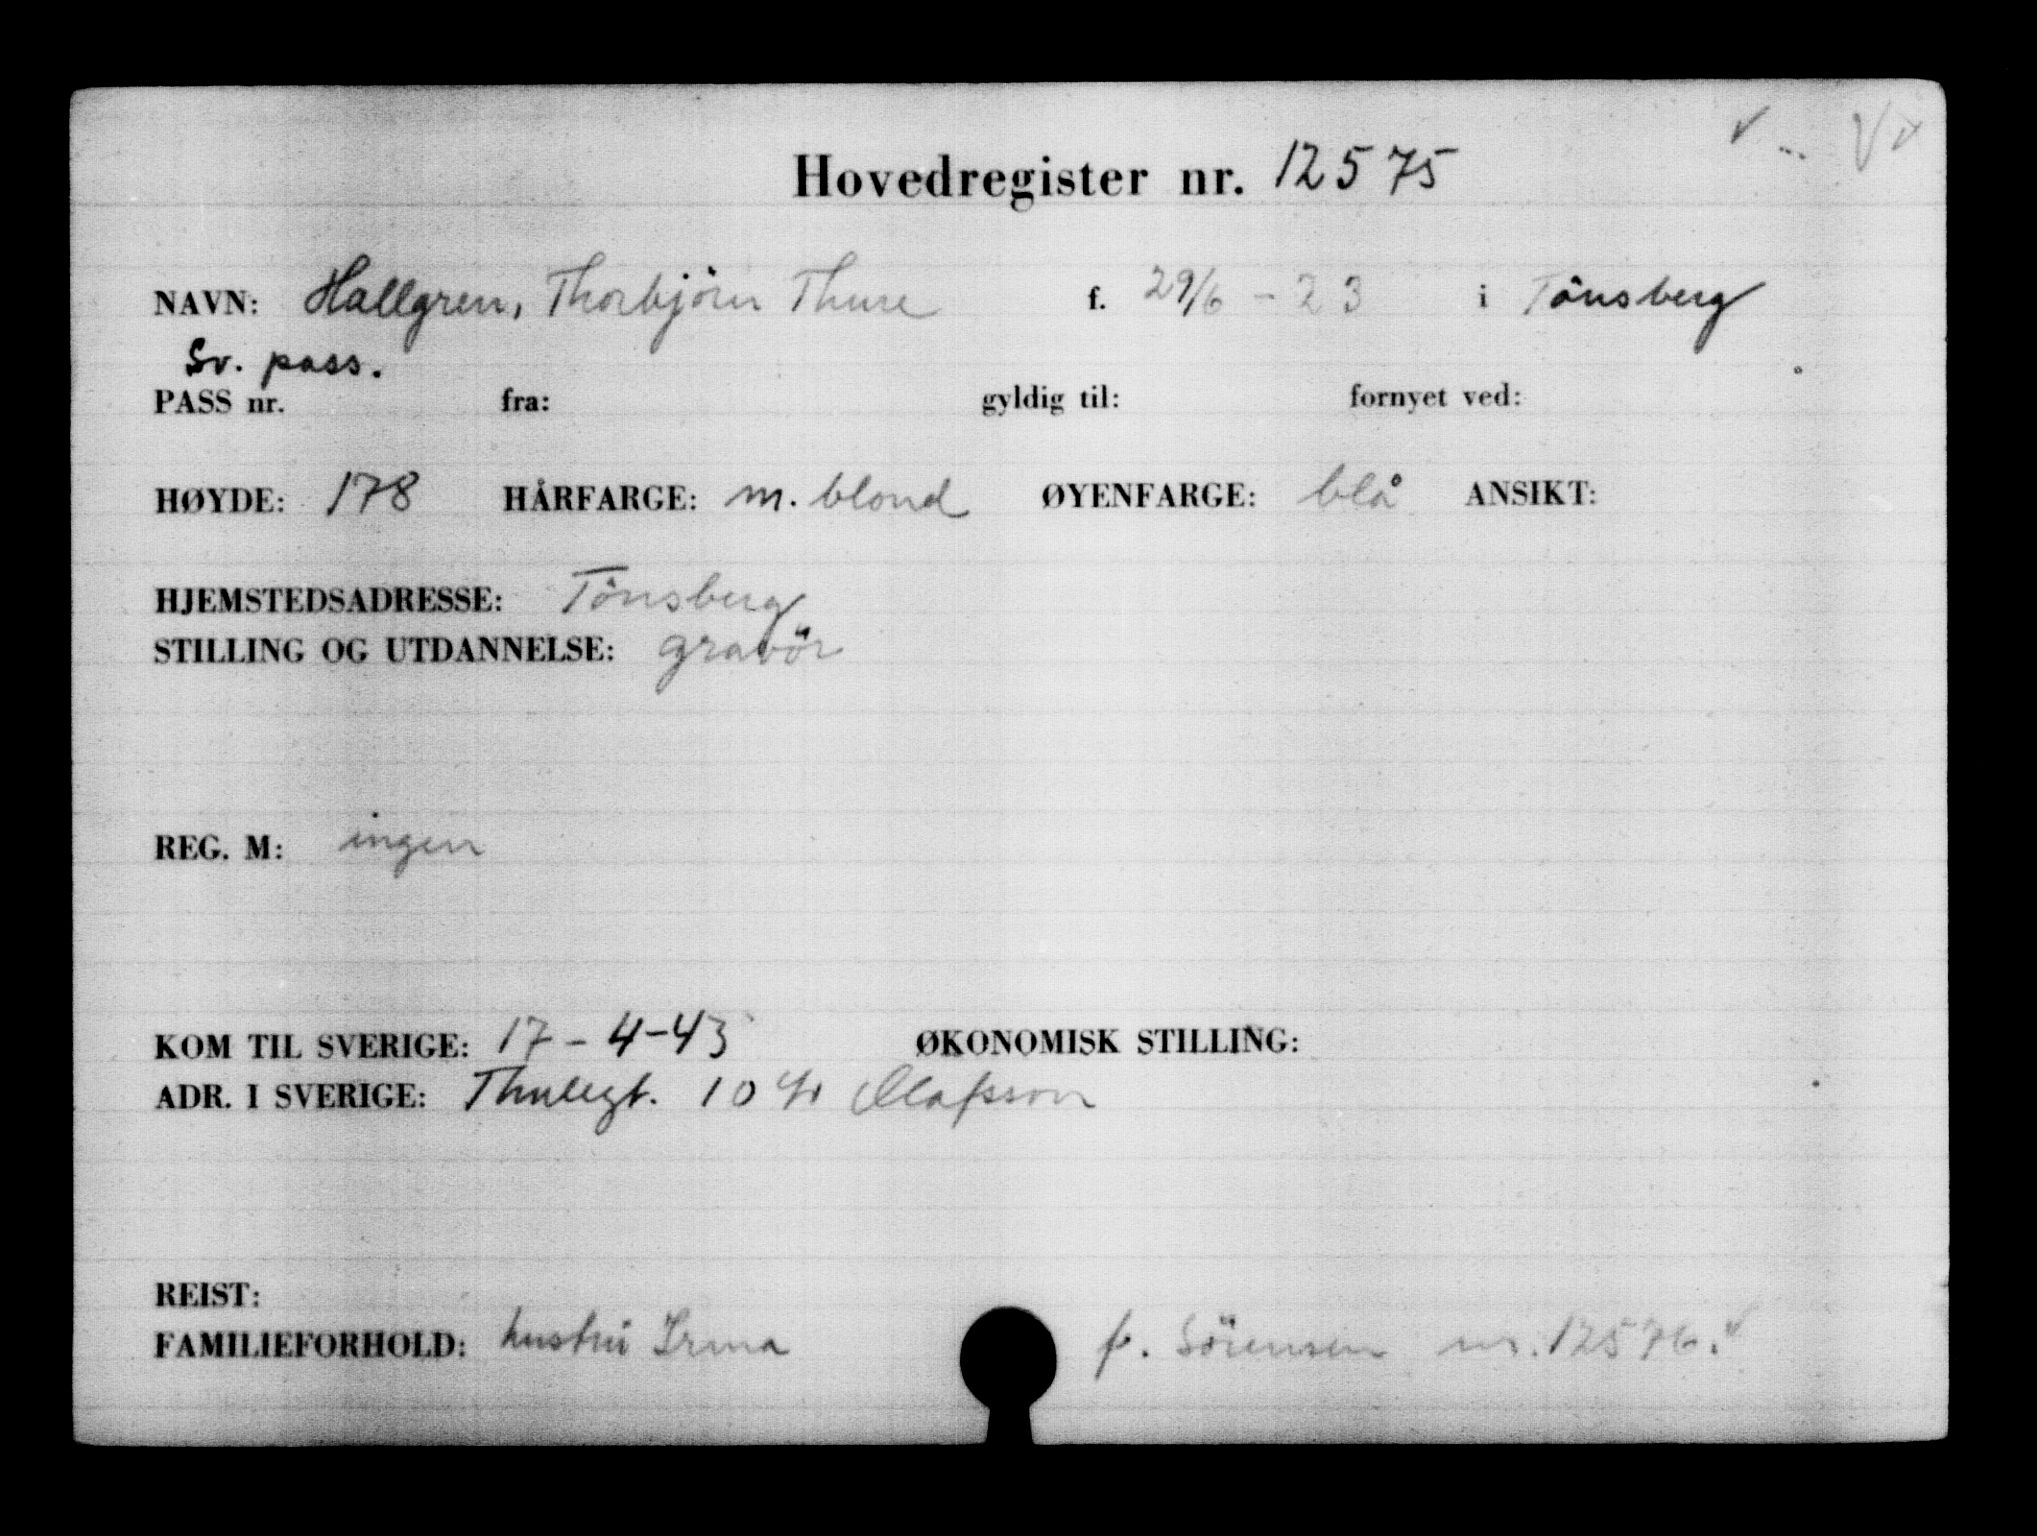 Hovedregister nr. 12575
NAVN: Hallgren, Thorbjörn Thure f. 29/6 - 23 i Tönsberg
Sv. pass.
PASS nr. fra: gyldig til: fornyet ved:
HØYDE: 178 HÅRFARGE: m. blond ØYENFARGE: blå ANSIKT:
HJEMSTEDSADRESSE: Tönsberg
STILLING OG UTDANNELSE: gravör
REG. M: ingen
KOM TIL SVERIGE: 17-4-43 ØKONOMISK STILLING:
ADR. I SVERIGE: Thulegt. 10 Olafsson
REIST:
FAMILIEFORHOLD: hustru Irma f. Sörensen nr. 12576.